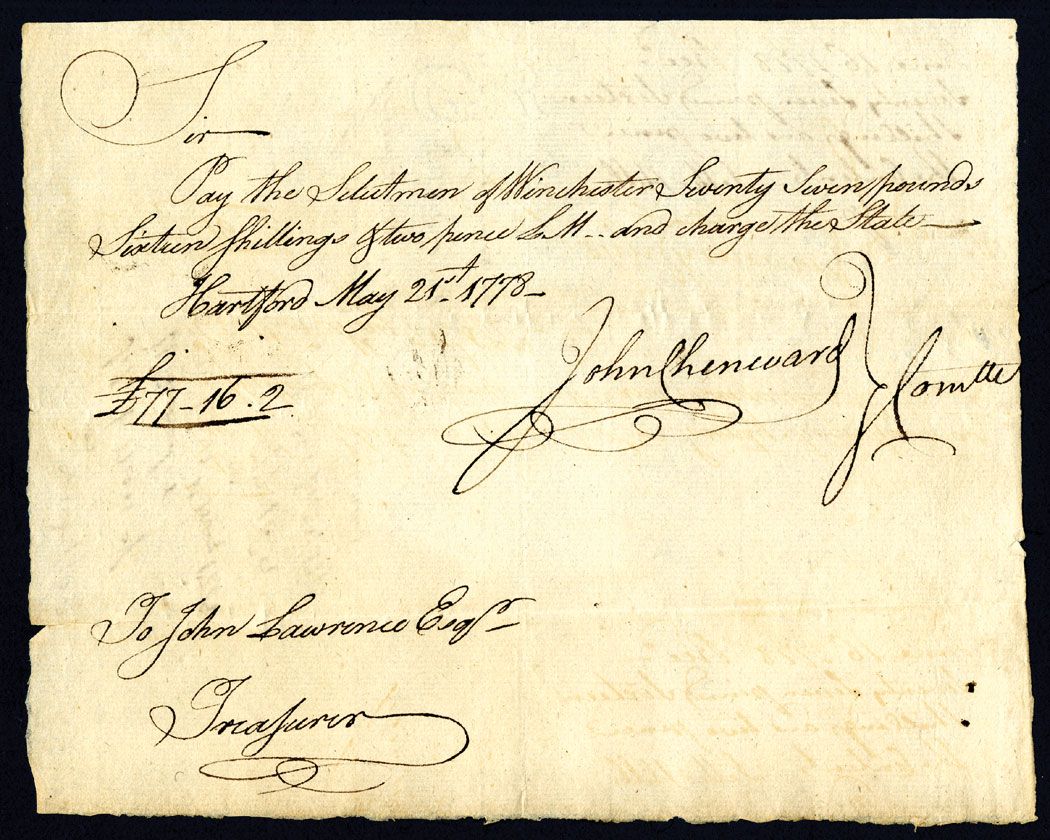 Sir
Pay the Selectmen of Winchester Seventy Seven pounds
Sixteen Shillings & two pence L.M.. and charge the State
Hartford May 21st. 1778
£77-16.2
John Chenward } Comtte
To John Lawrence Esqr.
Treasurer